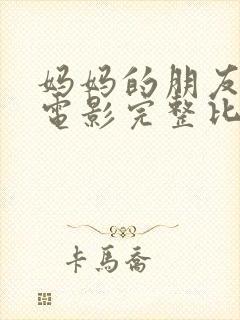 妈妈的朋友
電影完整比
卡馬喬